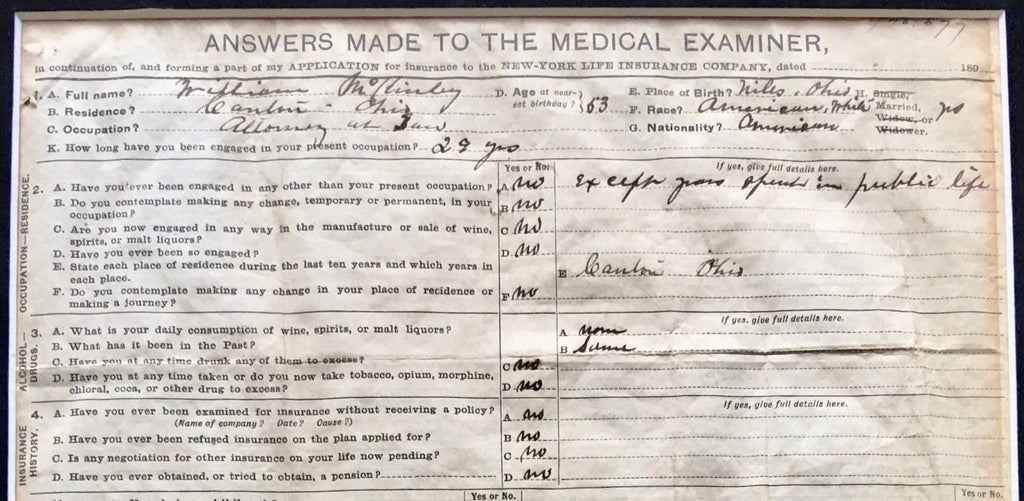 ANSWERS MADE TO THE MEDICAL EXAMINER,
in continuation of, and forming a part of my APPLICATION for insurance to the NEW-YORK LIFE INSURANCE COMPANY, dated 189
1. A. Full name? William McKinley D. Age at near-est birthday? 53 E. Place of Birth? Niles, Ohio H. Single,
B. Residence? Canton Ohio F. Race? American, White Married, yes
C. Occupation? Attorney at Law G. Nationality? American Widow, or Widower.
K. How long have you been engaged in your present occupation? 29 yrs
OCCUPATION—RESIDENCE.
Yes or No. If yes, give full details here.
2. A. Have you ever been engaged in any other than your present occupation? A no Except years spent in public life
B. Do you contemplate making any change, temporary or permanent, in your
occupation? B no
C. Are you now engaged in any way in the manufacture or sale of wine,
spirits, or malt liquors? C no
D. Have you ever been so engaged? D no
E. State each place of residence during the last ten years and which years in
each place. E Canton Ohio
F. Do you contemplate making any change in your place of residence or
making a journey? F no
ALCOHOL—DRUGS.
If yes, give full details here.
3. A. What is your daily consumption of wine, spirits, or malt liquors? A none
B. What has it been in the Past? B Same
C. Have you at any time drunk any of them to excess? C no
D. Have you at any time taken or do you now take tobacco, opium, morphine,
chloral, coca, or other drug to excess? D no
INSURANCE HISTORY.
If yes, give full details here.
4. A. Have you ever been examined for insurance without receiving a policy? A no
(Name of company? Date? Cause?)
B. Have you ever been refused insurance on the plan applied for? B no
C. Is any negotiation for other insurance on your life now pending? C no
D. Have you ever obtained, or tried to obtain, a pension? D no
Yes or No. Yes or No.